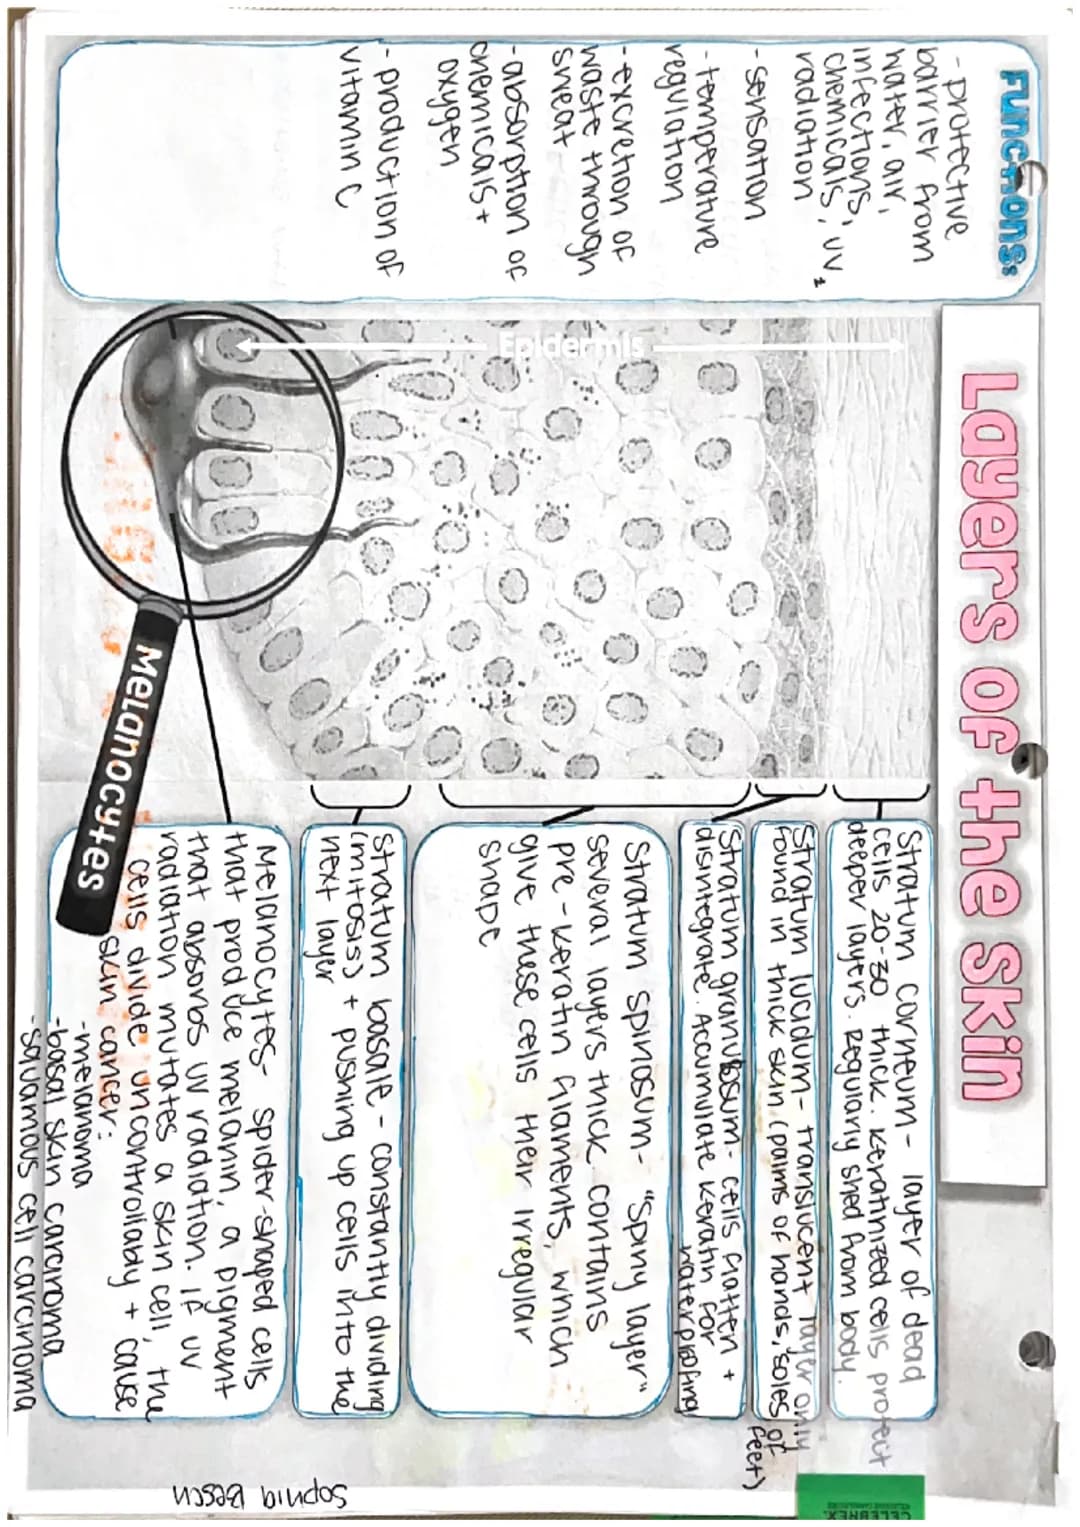 Layers of the Skin
Functions:
- protective
barrier from
water, air,
infections,
chemicals, UV
radiation
- sensation
- temperature
regulation
- excretion of
waste through
sweat
- absorption of
chemicals +
oxygen
- production of
vitamin C
Epidermis
Stratum corneum - layer of dead
cells 20-30 thick. Keratinized cells protect
deeper layers. Regularly shed from body.
Stratum lucidum - translucent layer only
found in thick skin (palms of hands, soles of
feet)
Stratum granulosum - cells flatten +
disintegrate. Accumulate keratin for
waterproofing
Stratum spinosum - "spiny layer"
several layers thick. contains
pre-keratin filaments, which
give these cells their irregular
shape
Stratum basale - constantly dividing
(mitosis) + pushing up cells into the
next layer
Melanocytes
Melanocytes - spider-shaped cells
that produce melanin, a pigment
that absorbs UV radiation. If UV
radiation mutates a skin cell, the
cells divide uncontrollably + cause
skin cancer:
- melanoma
- basal skin carcinoma
- squamous cell carcinoma
Sophia Besch
CELEBREX